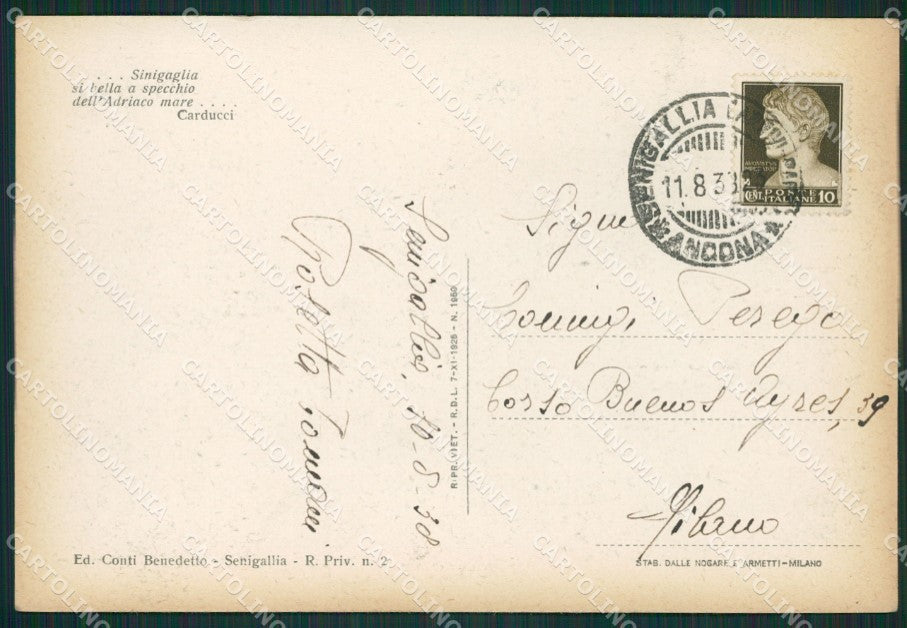 . . . Sinigaglia
si bella a specchio
dell'Adriaco mare . . . .
Carducci
11.8.38
ANCONA
POSTE
ITALIANE
CENT. 10
Senigallia, 10-8-38
Rosetta
R. PR. VIET. - R.D.L. 7-XI-1925 - N. 1950
Perego
Corso Buenos Ayres, 39
Milano
Ed. Conti Benedetto - Senigallia - R. Priv. n. 2
STAB. DALLE NOGARE E ARMETTI - MILANO
CARTOLINOMANIA